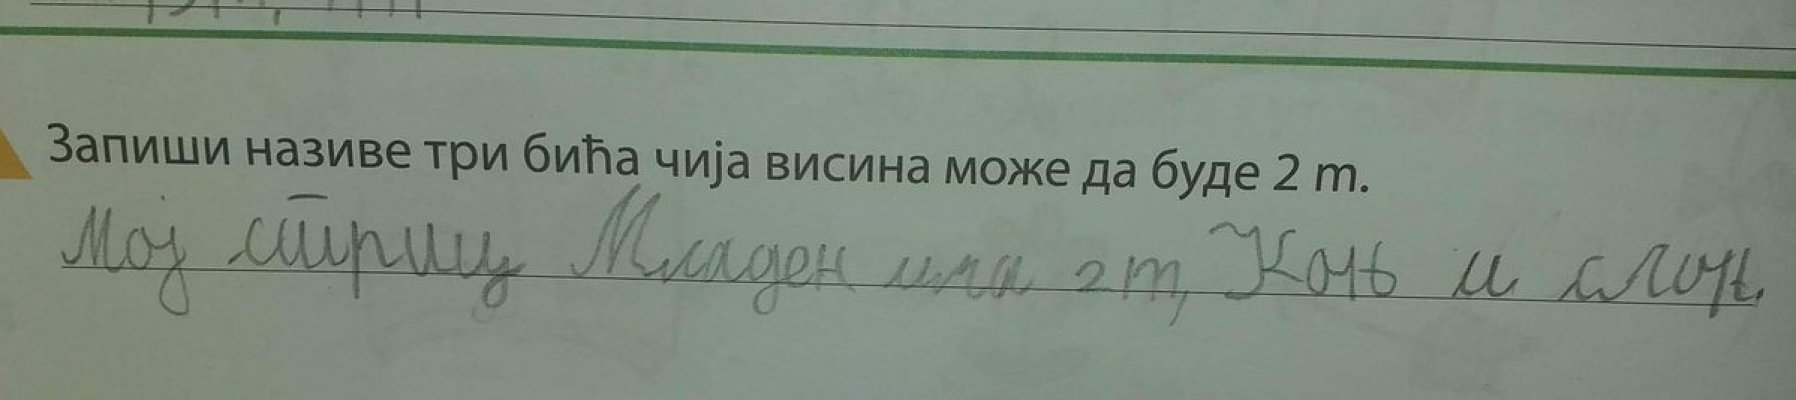 Запиши називе три бића чија висина може да буде 2 m.
Мој стриц Младен има 2 m, Коњ и слон.